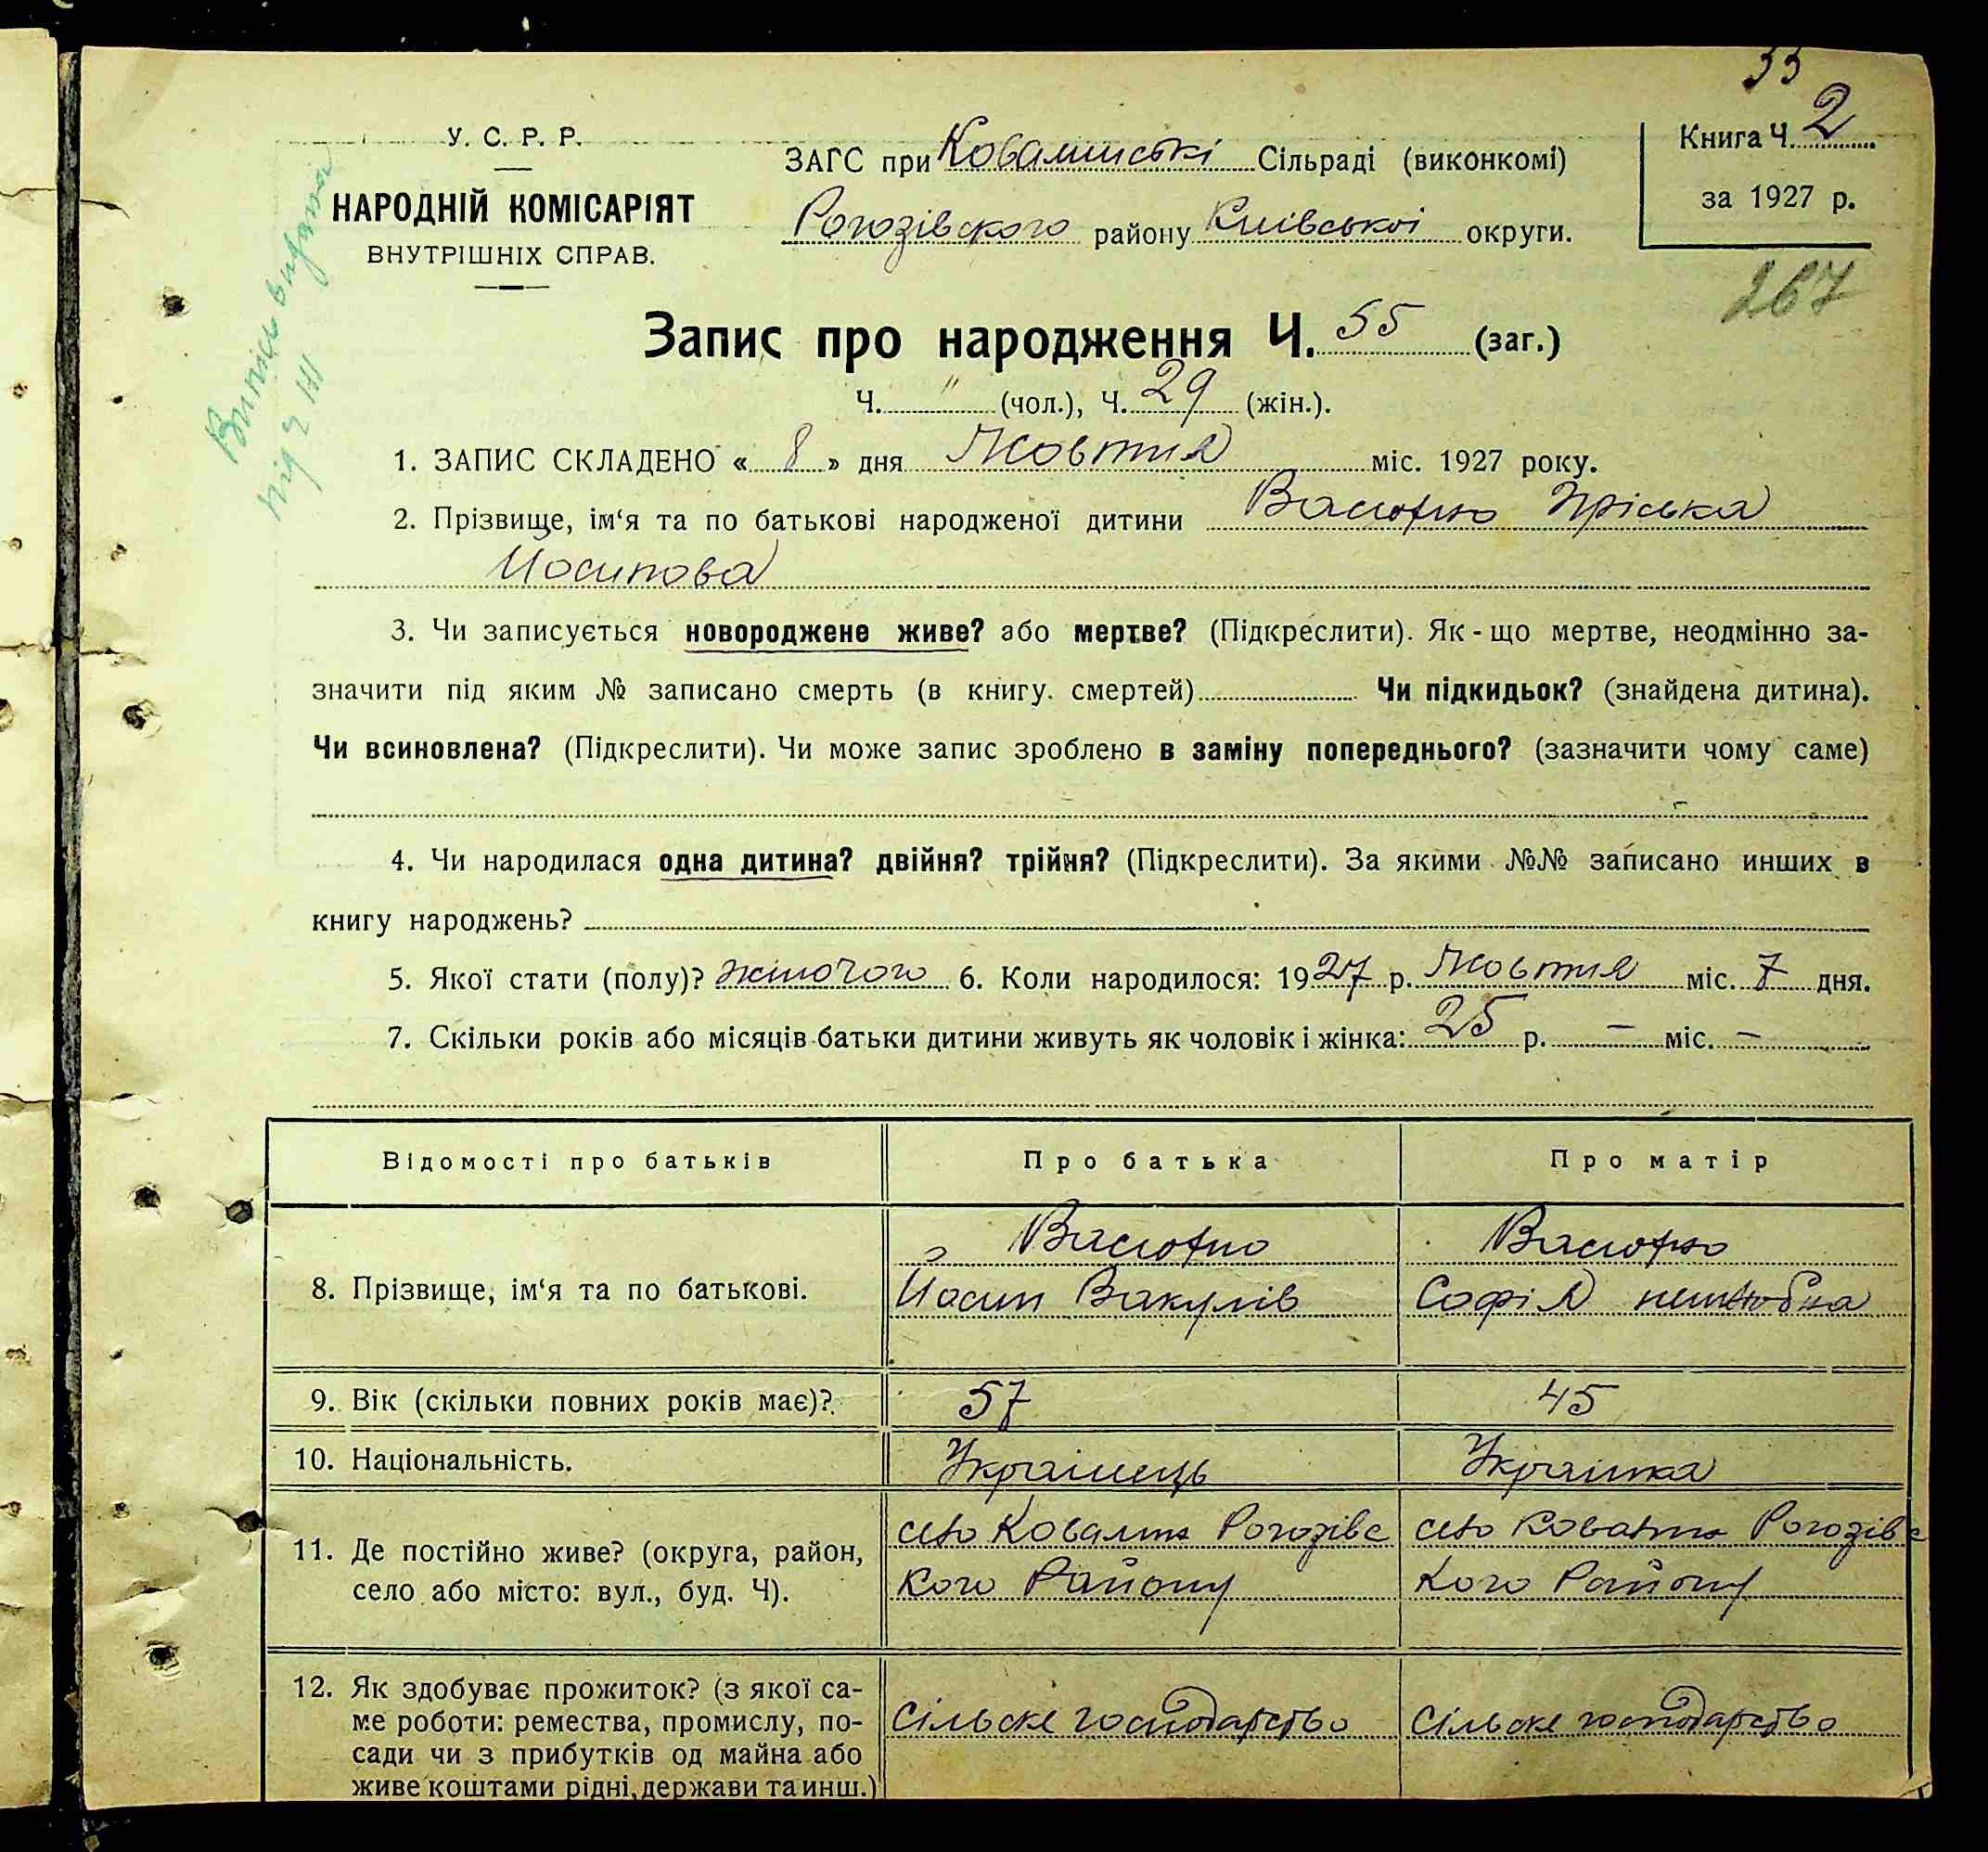 33
У. С. Р. Р.
НАРОДНІЙ КОМІСАРІЯТ
ВНУТРІШНІХ СПРАВ.
ЗАГС при Ковалинські Сільраді (виконкомі)
Рогозівского району Київської округи.
Книга Ч. 2
за 1927 р.
267
Випись видана
під Ч
Запис про народження Ч. 55 (заг.)
Ч. " (чол.), Ч. 29 (жін.).
1. ЗАПИС СКЛАДЕНО « 8 » дня Жовтня міс. 1927 року.
2. Прізвище, ім‘я та по батькові народженої дитини Пріська
Йосипова
3. Чи записується новороджене живе? або мертве? (Підкреслити). Як-що мертве, неодмінно за-
значити під яким № записано смерть (в книгу. смертей) Чи підкидьок? (знайдена дитина).
Чи всиновлена? (Підкреслити). Чи може запис зроблено в заміну попереднього? (зазначити чому саме)
4. Чи народилася одна дитина? двійня? трійня? (Підкреслити). За якими №№ записано инших в
книгу народжень?
5. Якої стати (полу)? жіночого 6. Коли народилося: 1927 р. Жовтня міс. 7 дня.
7. Скільки років або місяців батьки дитини живуть як чоловік і жінка: 25 р. — міс. —
Відомості про батьків Про батька Про матір
8. Прізвище, ім‘я та по батькові.
Йосип Вакулів Софія
9. Вік (скільки повних років має)? 57 45
10. Національність. Українець Українка
11. Де постійно живе? (округа, район,
село або місто: вул., буд. Ч).
село Ковалин Рогозівс
кого Району
село Ковалин Рогозівс
кого Району
12. Як здобуває прожиток? (з якої са-
ме роботи: ремества, промислу, по-
сади чи з прибутків од майна або
живе коштами рідні, держави та инш.)
Сільске господарство Сільске господарство